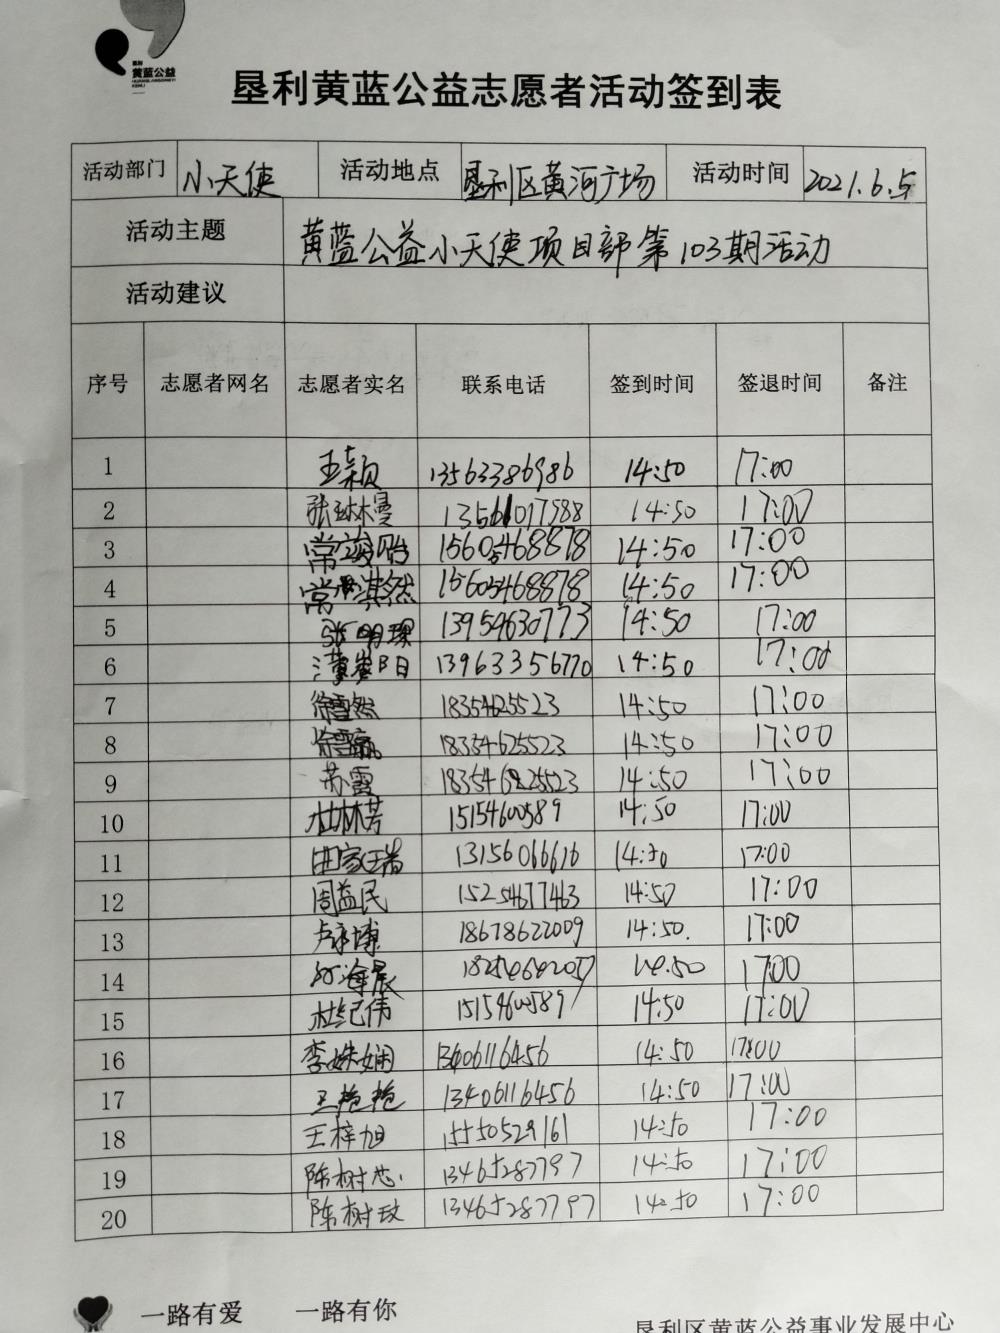 垦利
黄蓝公益
垦利黄蓝公益志愿者活动签到表
活动部门 小天使 活动地点 垦利区黄河广场 活动时间 2021.6.5
活动主题 黄蓝公益小天使项目部第103期活动
活动建议
序号 志愿者网名 志愿者实名 联系电话 签到时间 签退时间 备注
1 王颖 13563386986 14:50 17:00
2 张琳曼 14:50 17:00
3 14:50 17:00
4 常淇然 15605468878 14:50 17:00
5 张明琛 13954630773 14:50 17:00
6 13963356770 14:50 17:00
7 徐雪然 18354625523 14:50 17:00
8 18354625523 14:50 17:00
9 苏霞 14:50 17:00
10 杜林芳 15154600589 14:50 17:00
11 田家瑞 13156066616 14:50 17:00
12 周益民 15254677463 14:50 17:00
13 卢永博 18678622009 14:50. 17:00
14 海晨 14:50 17:00
15 杜纪伟 15154600589 14:50 17:00
16 李姝娴 13406116456 14:50 17:00
17 王艳艳 13406116456 14:50 17:00
18 王梓旭 15550529161 14:50 17:00
19 陈树芯 13465287797 14:50 17:00
20 陈树玟 13465287797 14:50 17:00
一路有爱 一路有你
垦利区黄蓝公益事业发展中心